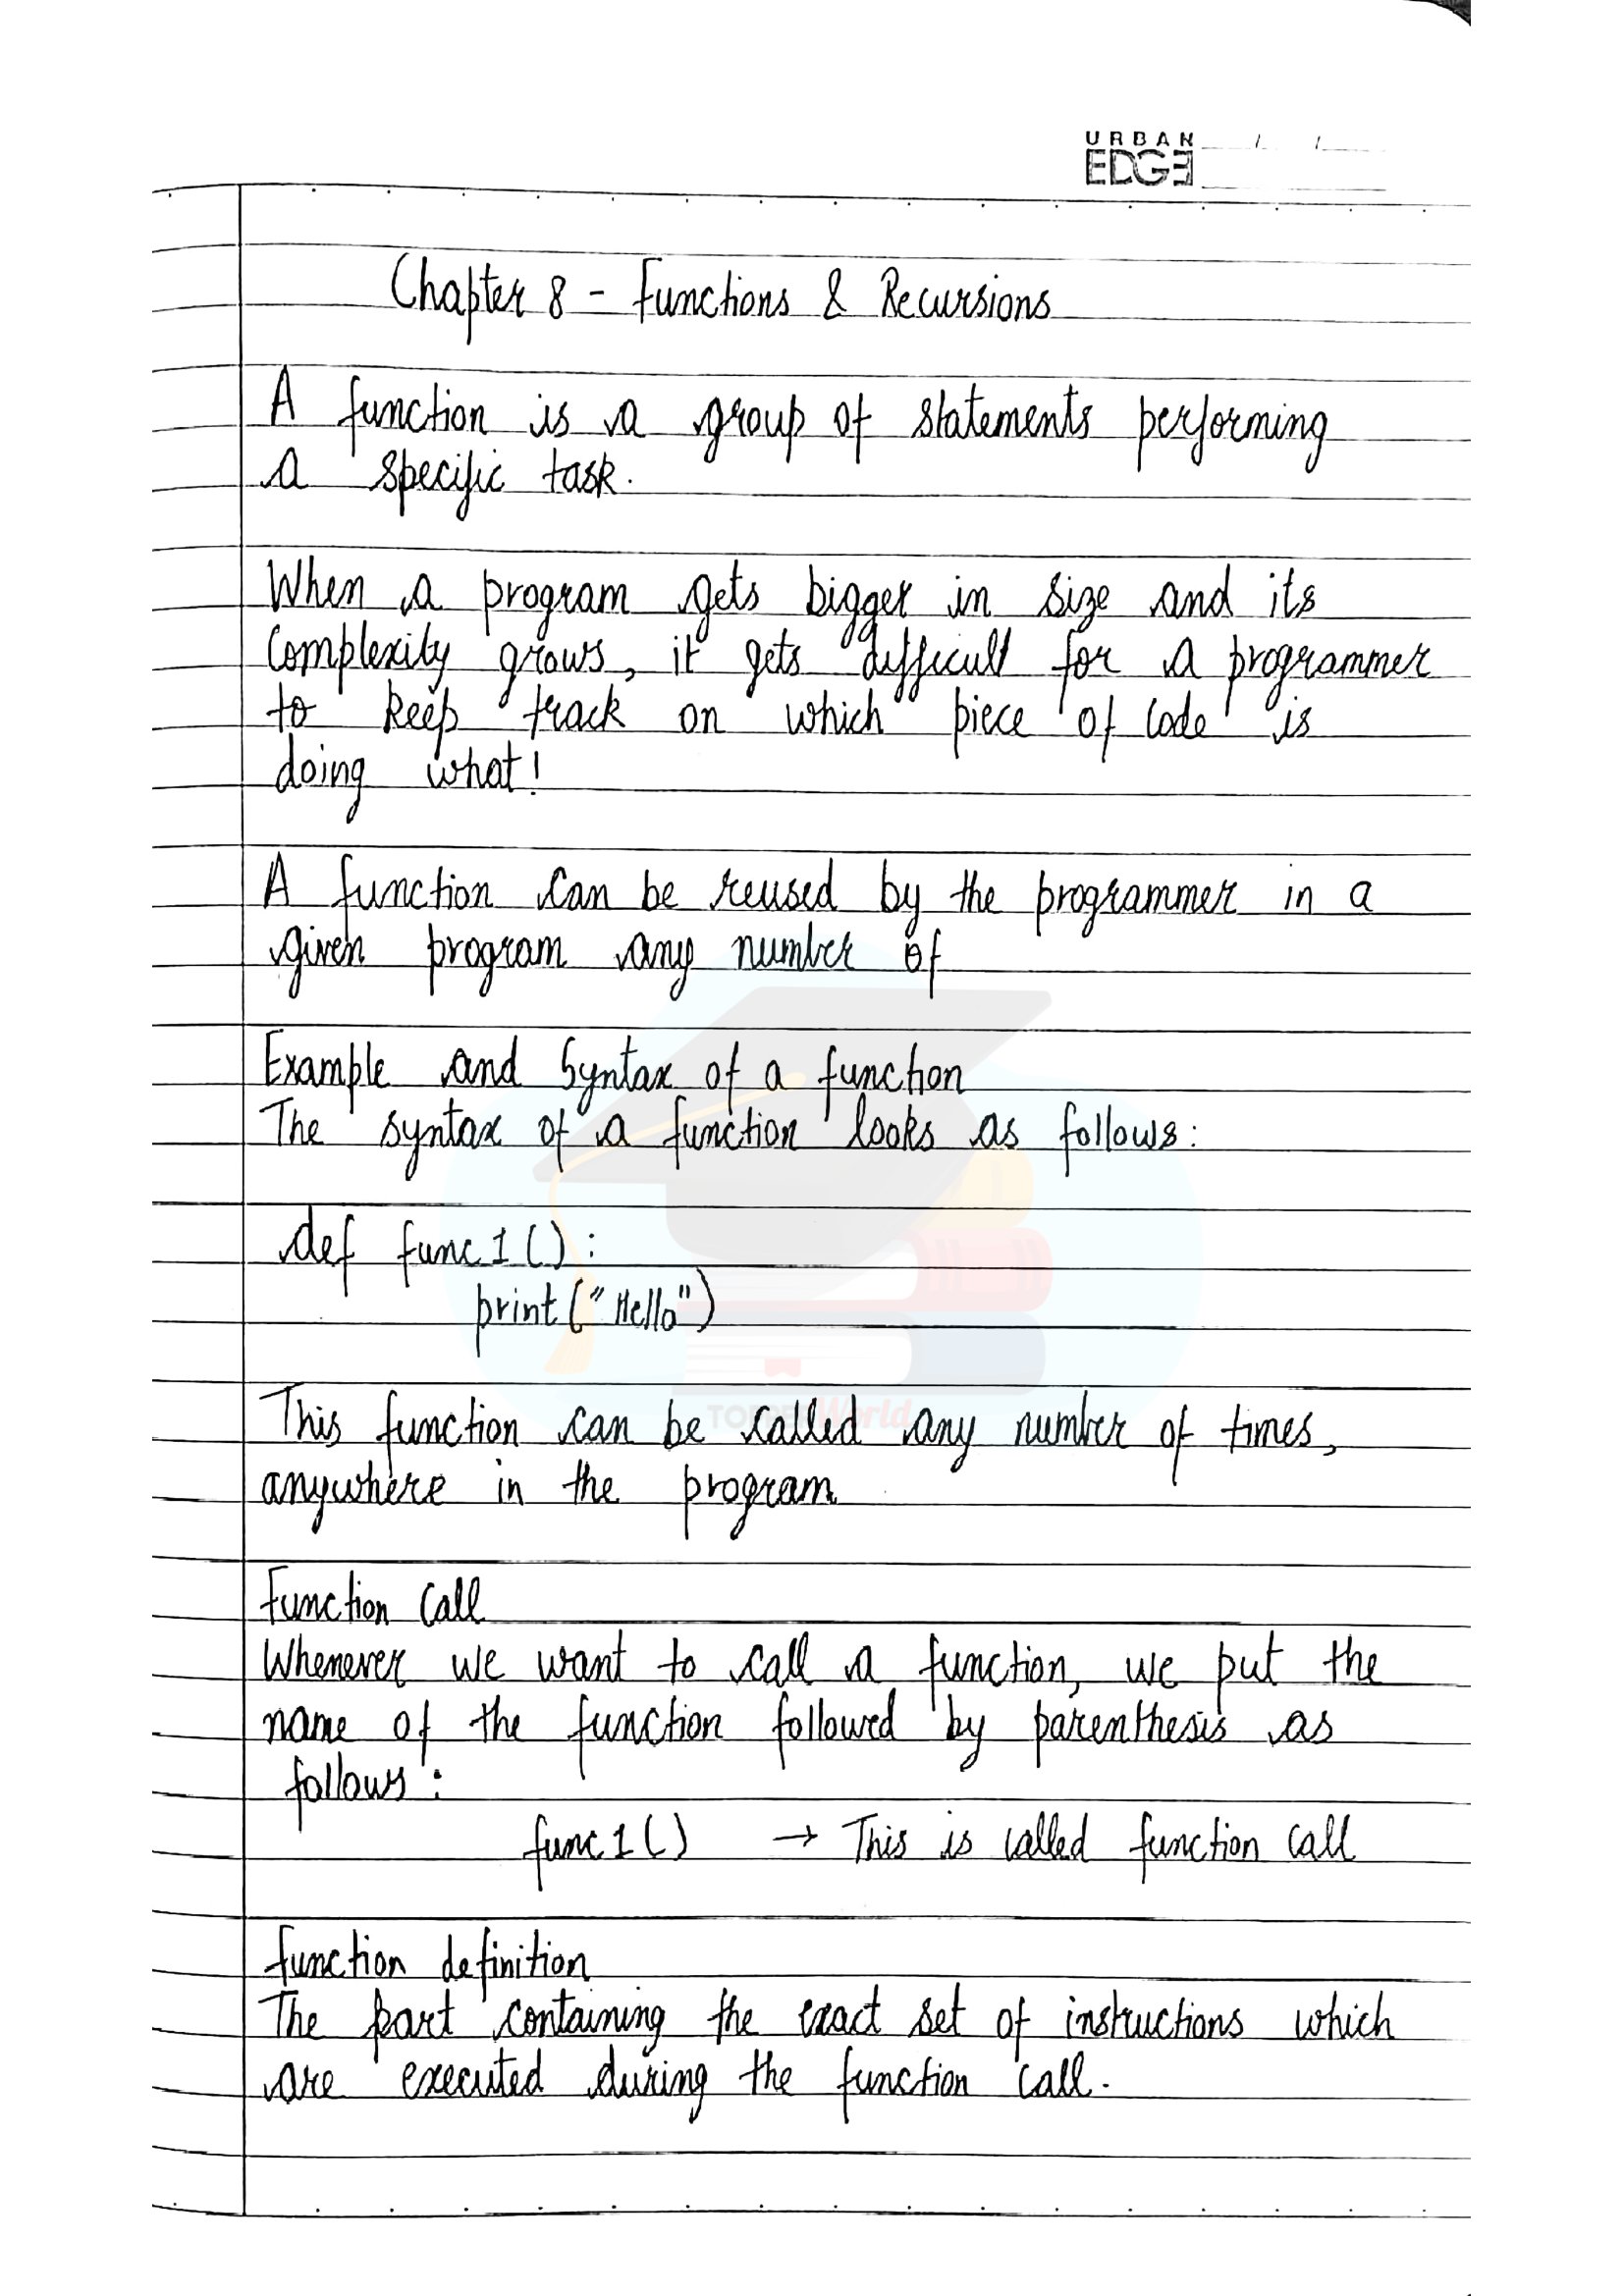 URBAN
EDGE
Chapter 8 - Functions & Recursions
A function is a group of statements performing
a specific task.
When a program gets bigger in size and its
complexity grows, it gets difficult for a programmer
to keep track on which piece of code is
doing what!
A function can be reused by the programmer in a
given program any number of
Example and Syntax of a function
The syntax of a function looks as follows:
def func1():
print("Hello")
TOPPERWorld
This function can be called any number of times,
anywhere in the program
Function Call
Whenever we want to call a function, we put the
name of the function followed by parenthesis as
follows:
func1() → This is called function call
function definition
The part containing the exact set of instructions which
are executed during the function call.